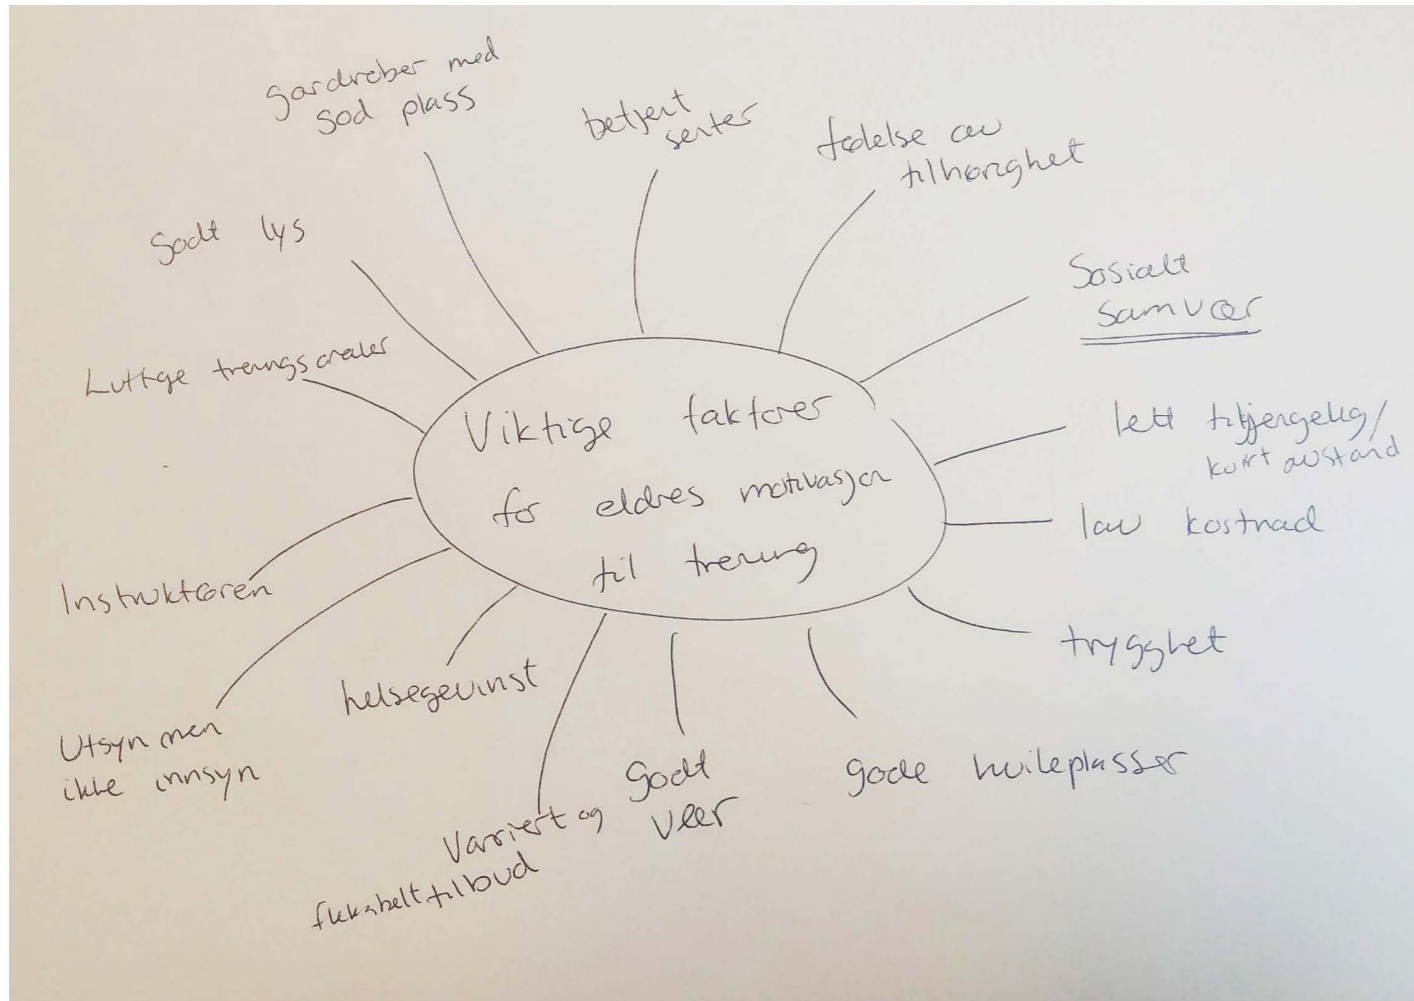 Viktige faktorer
for eldres motivasjon
til trening
garderober med
god plass
betjent
senter
følelse av
tilhørighet
Sosialt
samvær
lett tilgjengelig/
kort avstand
lav kostnad
trygghet
gode hvileplasser
Godt
vær
Variert og
fleksibelt tilbud
helsegevinst
Utsyn men
ikke innsyn
Instruktøren
Luftige treningsarealer
Godt lys